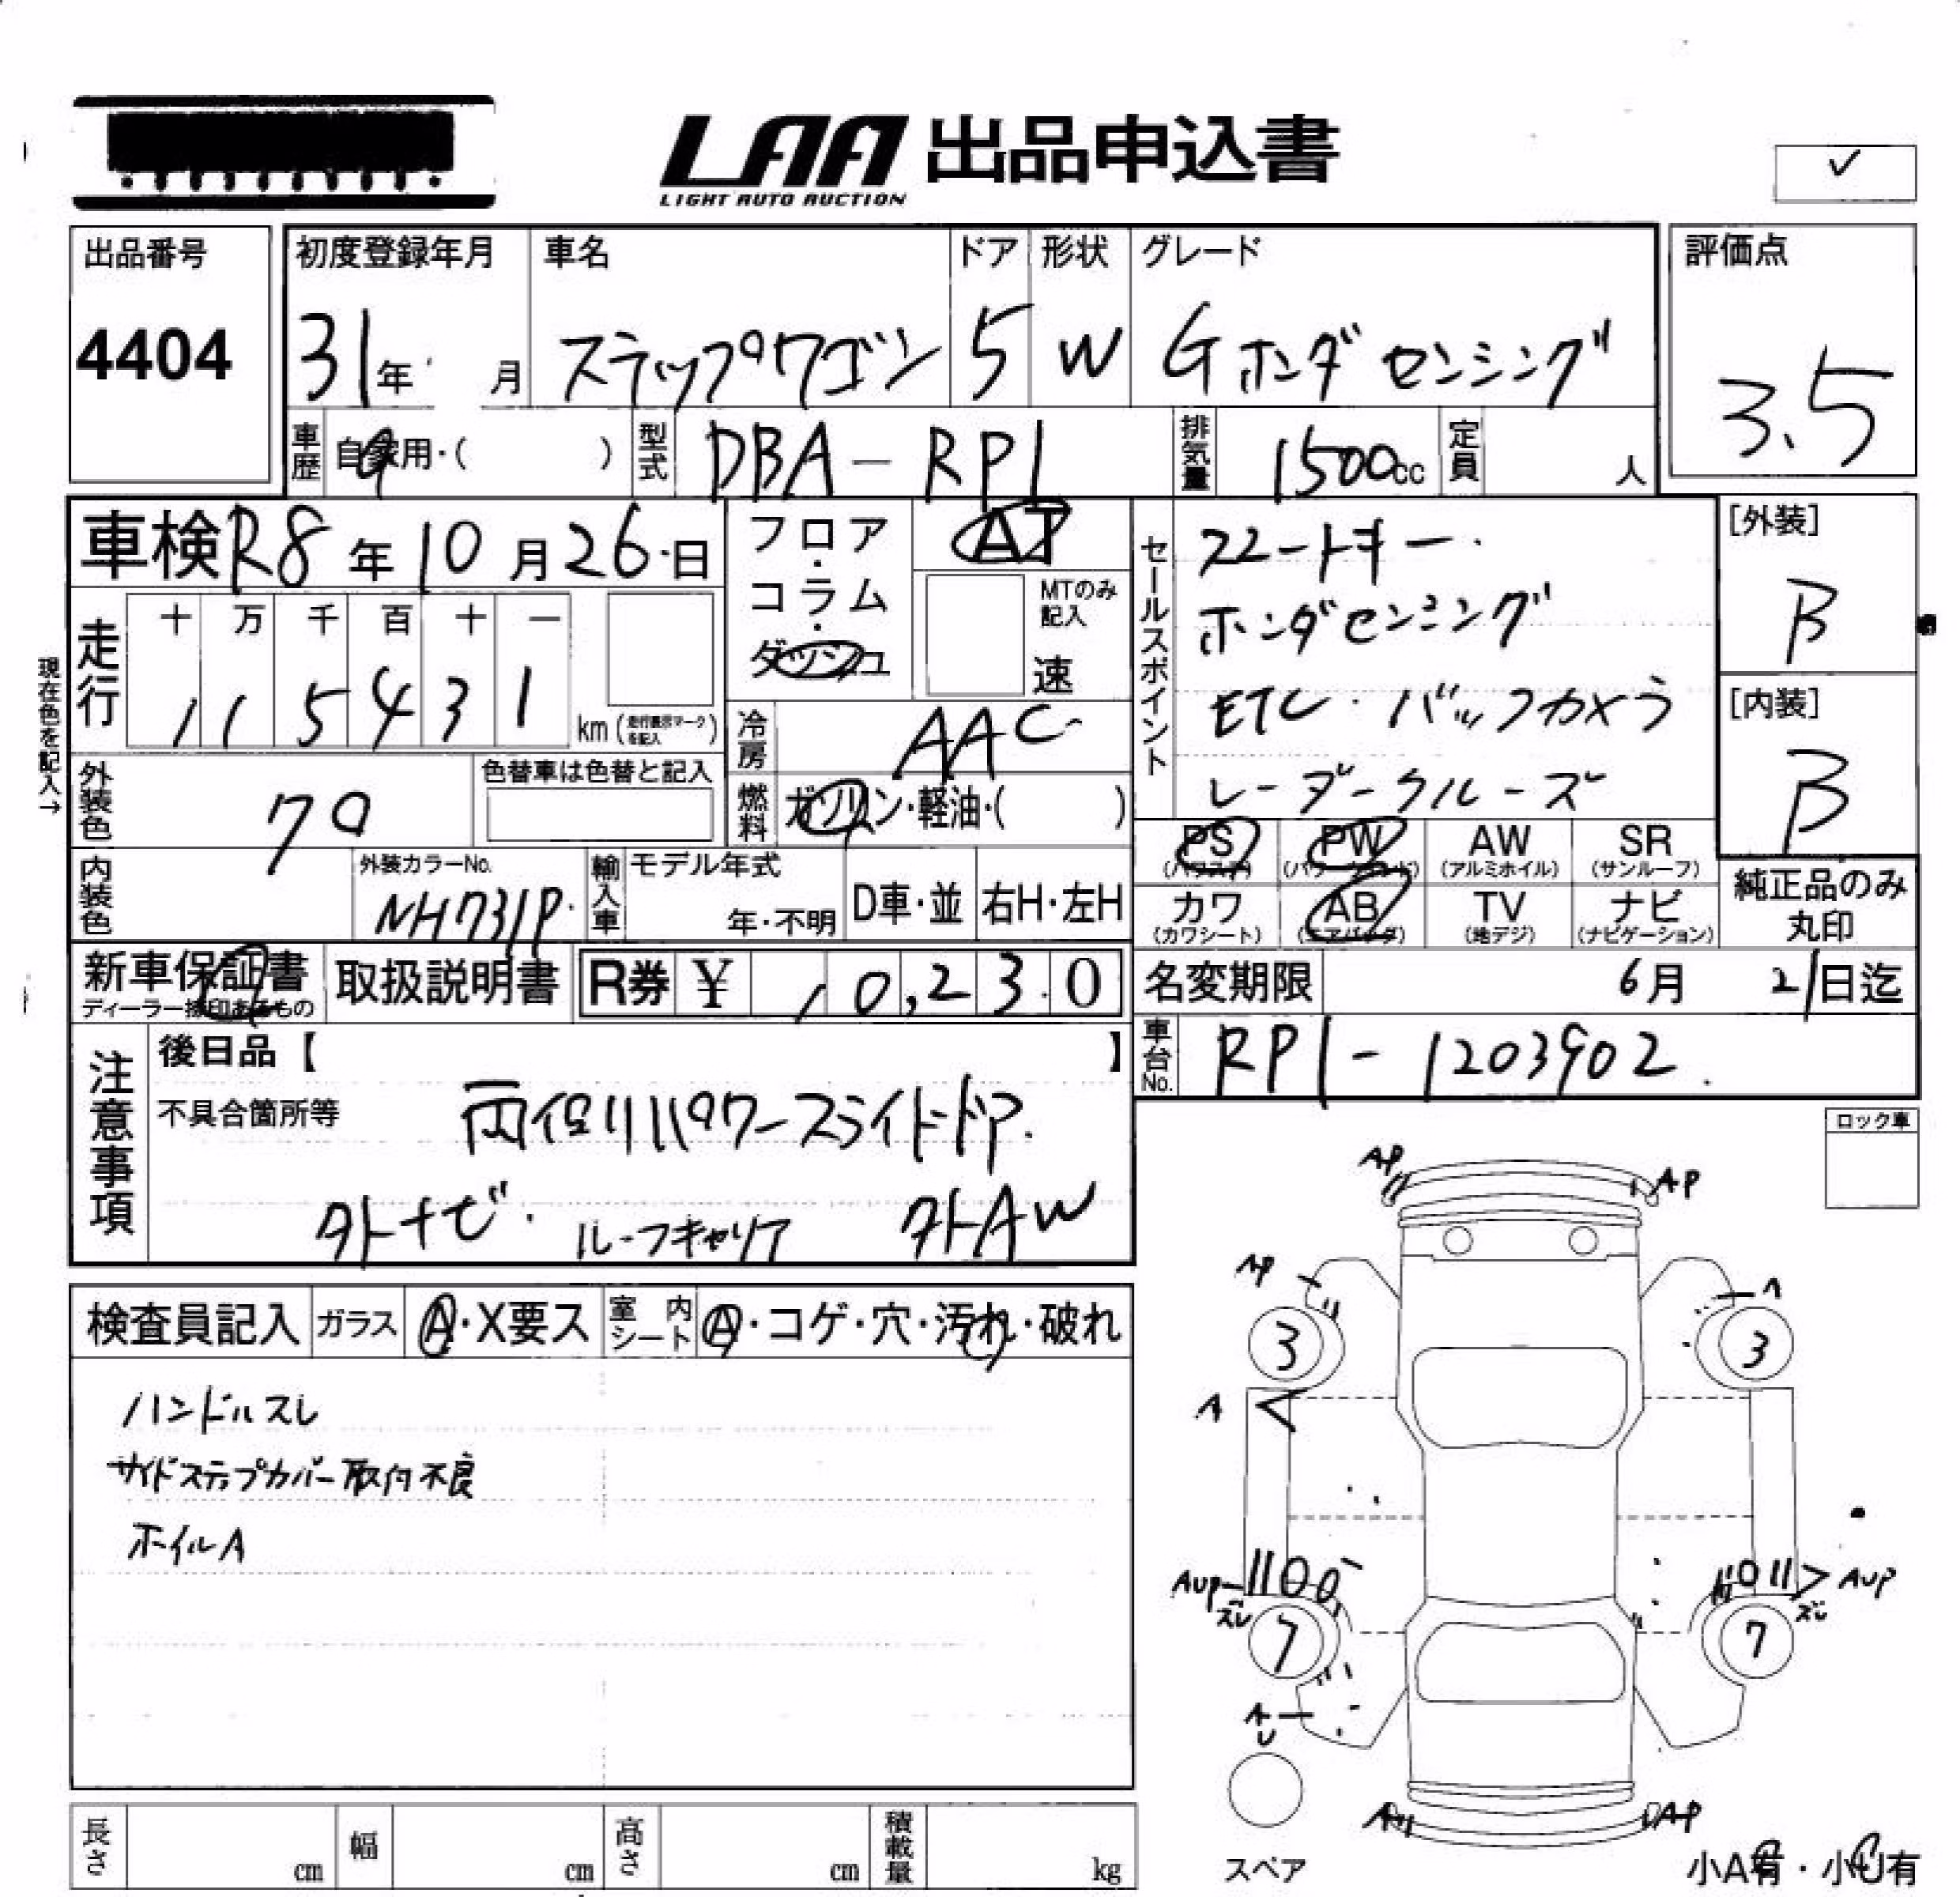 LAA 出品申込書
LIGHT AUTO AUCTION
✓
出品番号
4404
初度登録年月
31年 月
車名
ステップワゴン
ドア
5
形状
W
グレード
G ホンダセンシング
評価点
3.5
車歴 自家用・( )
型式 DBA-RP1
排気量 1500cc
定員 人
車検 R8年10月26日
フロア・コラム・ダッシュ
AT
MTのみ記入
速
セールスポイント
スマートキー.
ホンダセンシング
ETC・バックカメラ
レーダークルーズ
[外装]
B
[内装]
B
走行
十 万 千 百 十 一
1 1 5 4 3 1
km(走行表示マークを記入)
現在色を記入→
冷房 AAC
外装色
色替車は色替と記入
燃料 ガソリン・軽油・( )
PS PW AW SR
(パワステ) (パワーウィンド) (アルミホイル) (サンルーフ)
カワ AB TV ナビ
(カワシート) (エアバッグ) (地デジ) (ナビゲーション)
純正品のみ
丸印
内装色
外装カラーNo.
NH731P.
輸入車
モデル年式
年・不明
D車・並
右H・左H
新車保証書
ディーラー捺印あるもの
取扱説明書
R券 ¥ 10,230
名変期限 6月 21日迄
車台No. RP1-1203902.
注意事項
後日品【 】
不具合箇所等
両側パワースライドドア.
外ナビ. ルーフキャリア 外AW
ロック車
検査員記入 ガラス A・X要ス 室内シート A・コゲ・穴・汚れ・破れ
ハンドルスレ
サイドステップカバー取付不良
ホイルA
AP AP
AP A
3 3
A
AUP AUP
ズレ ズレ
7 7
AU
AP
スペア
小A有・小U有
長さ cm
幅 cm
高さ cm
積載量 kg